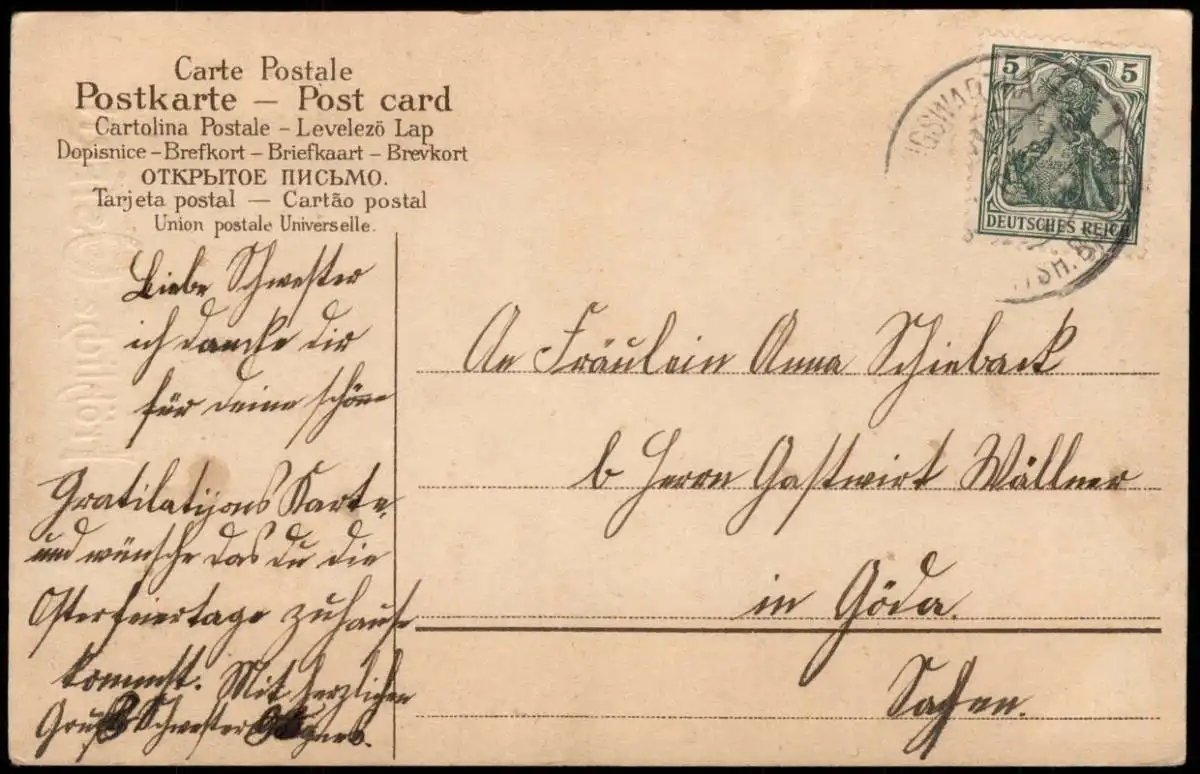 Carte Postale
Postkarte — Post card
Cartolina Postale – Levelező Lap
Dopisnice – Brefkort – Briefkaart – Brevkort
ОТКРЫТОЕ ПИСЬМО.
Tarjeta postal — Cartão postal
Union postale Universelle.
5 5
DEUTSCHES REICH
Liebe Schwester
ich dancke dir
für deine schöne
Gratilatijons Karte,
und wünsche das du die
Osterfeiertage zuhause
kommst. Mit herzlichen
Gruß Schwester Agnes.
An Fräulein Anna Schieback
b Herrn Gastwirt Wällner
in Göda.
Sachsen.